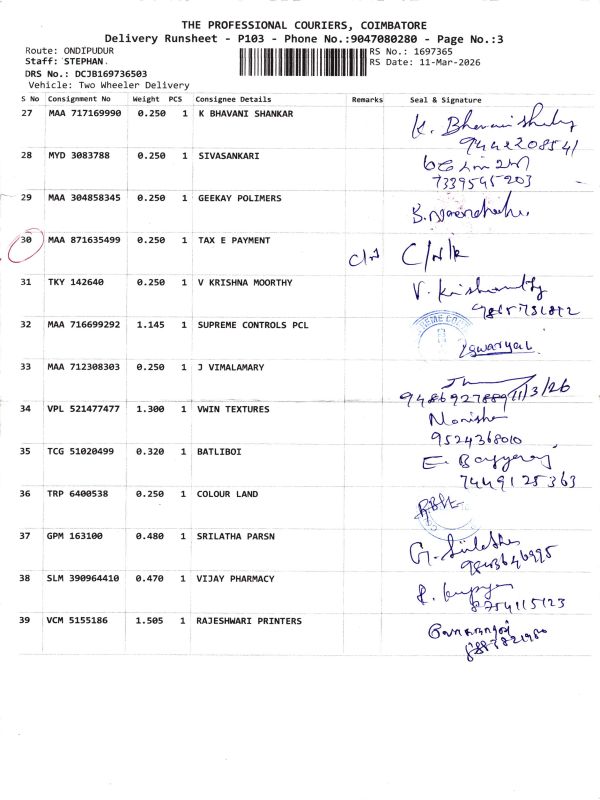 THE PROFESSIONAL COURIERS, COIMBATORE
Delivery Runsheet - P103 - Phone No.:9047080280 - Page No.:3
Route: ONDIPUDUR RS No.: 1697365
Staff: STEPHAN. RS Date: 11-Mar-2026
DRS No.: DCJB169736503
Vehicle: Two Wheeler Delivery
S No Consignment No Weight PCS Consignee Details Remarks Seal & Signature
27 MAA 717169990 0.250 1 K BHAVANI SHANKAR K. Bhavani
9442208541
28 MYD 3083788 0.250 1 SIVASANKARI
7339545203
29 MAA 304858345 0.250 1 GEEKAY POLIMERS
30 MAA 871635499 0.250 1 TAX E PAYMENT C/N C/N/R
31 TKY 142640 0.250 1 V KRISHNA MOORTHY V. Krishnamoorthy
32 MAA 716699292 1.145 1 SUPREME CONTROLS PCL
33 MAA 712308303 0.250 1 J VIMALAMARY
9486927889 11/3/26
34 VPL 521477477 1.300 1 VWIN TEXTURES Monisha
9524368010
35 TCG 51020499 0.320 1 BATLIBOI
7449125363
36 TRP 6400538 0.250 1 COLOUR LAND
37 GPM 163100 0.480 1 SRILATHA PARSN G. Srilatha
9843646995
38 SLM 390964410 0.470 1 VIJAY PHARMACY
8754115123
39 VCM 5155186 1.505 1 RAJESHWARI PRINTERS